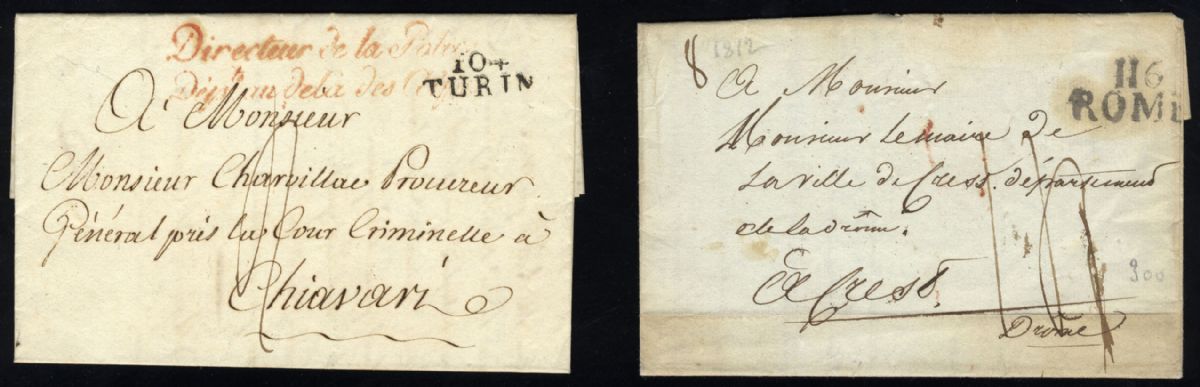 Directeur de la
104
TURIN
A Monsieur
Monsieur Charvillac Procureur
Général près la Cour Criminelle à
Chiavari
8
1812
116
ROME
A Monsieur
Monsieur Le maire De
La ville de Crest. département
de la drôme.
A Crest.
300
Drôme